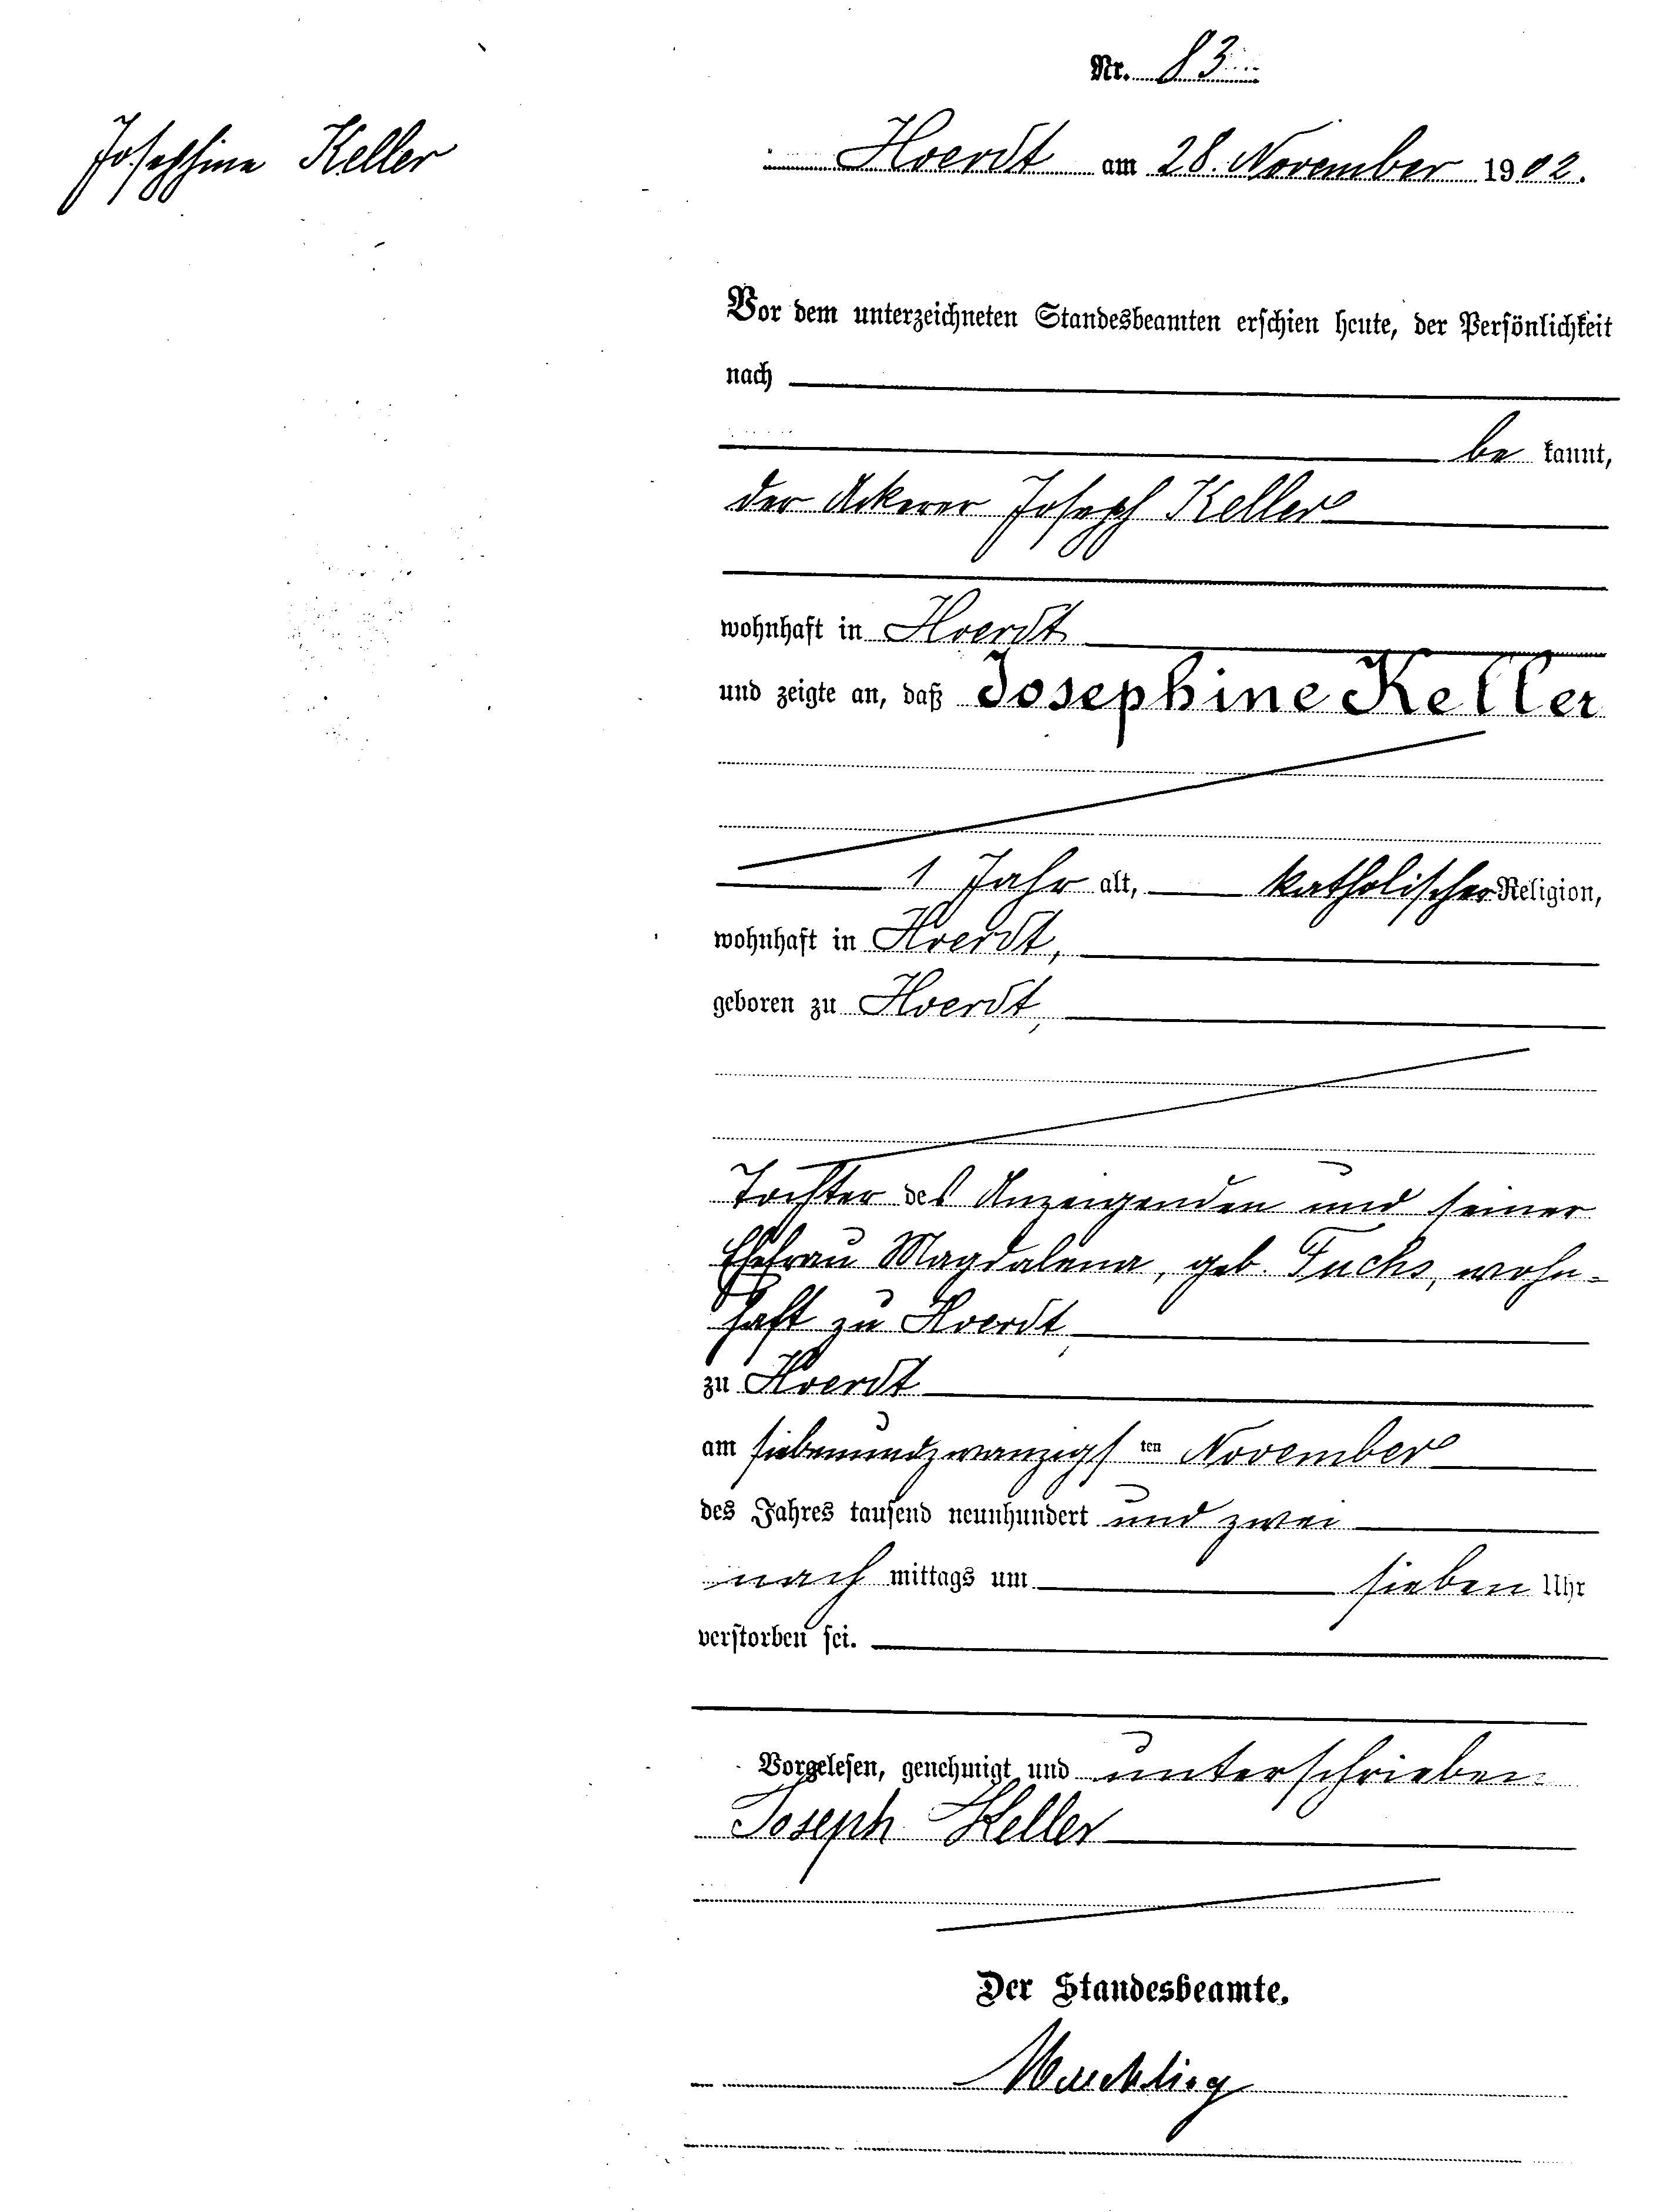 Nr. 83
Josephine Keller
Hoerdt am 28. November 1902.
Vor dem unterzeichneten Standesbeamten erschien heute, der Persönlichkeit
nach
be kannt,
der Ackerer Joseph Keller
wohnhaft in Hoerdt
und zeigte an, daß Josephine Keller
1 Jahr alt, katholischer Religion,
wohnhaft in Hoerdt,
geboren zu Hoerdt,
Tochter des Anzeigenden und seiner
Ehefrau Magdalena, geb. Fuchs, wohn-
haft zu Hoerdt
zu Hoerdt
am siebenundzwanzigs ten November
des Jahres tausend neunhundert und zwei
nach mittags um sieben Uhr
verstorben sei.
Vorgelesen, genehmigt und unterschrieben
Joseph Keller
Der Standesbeamte.